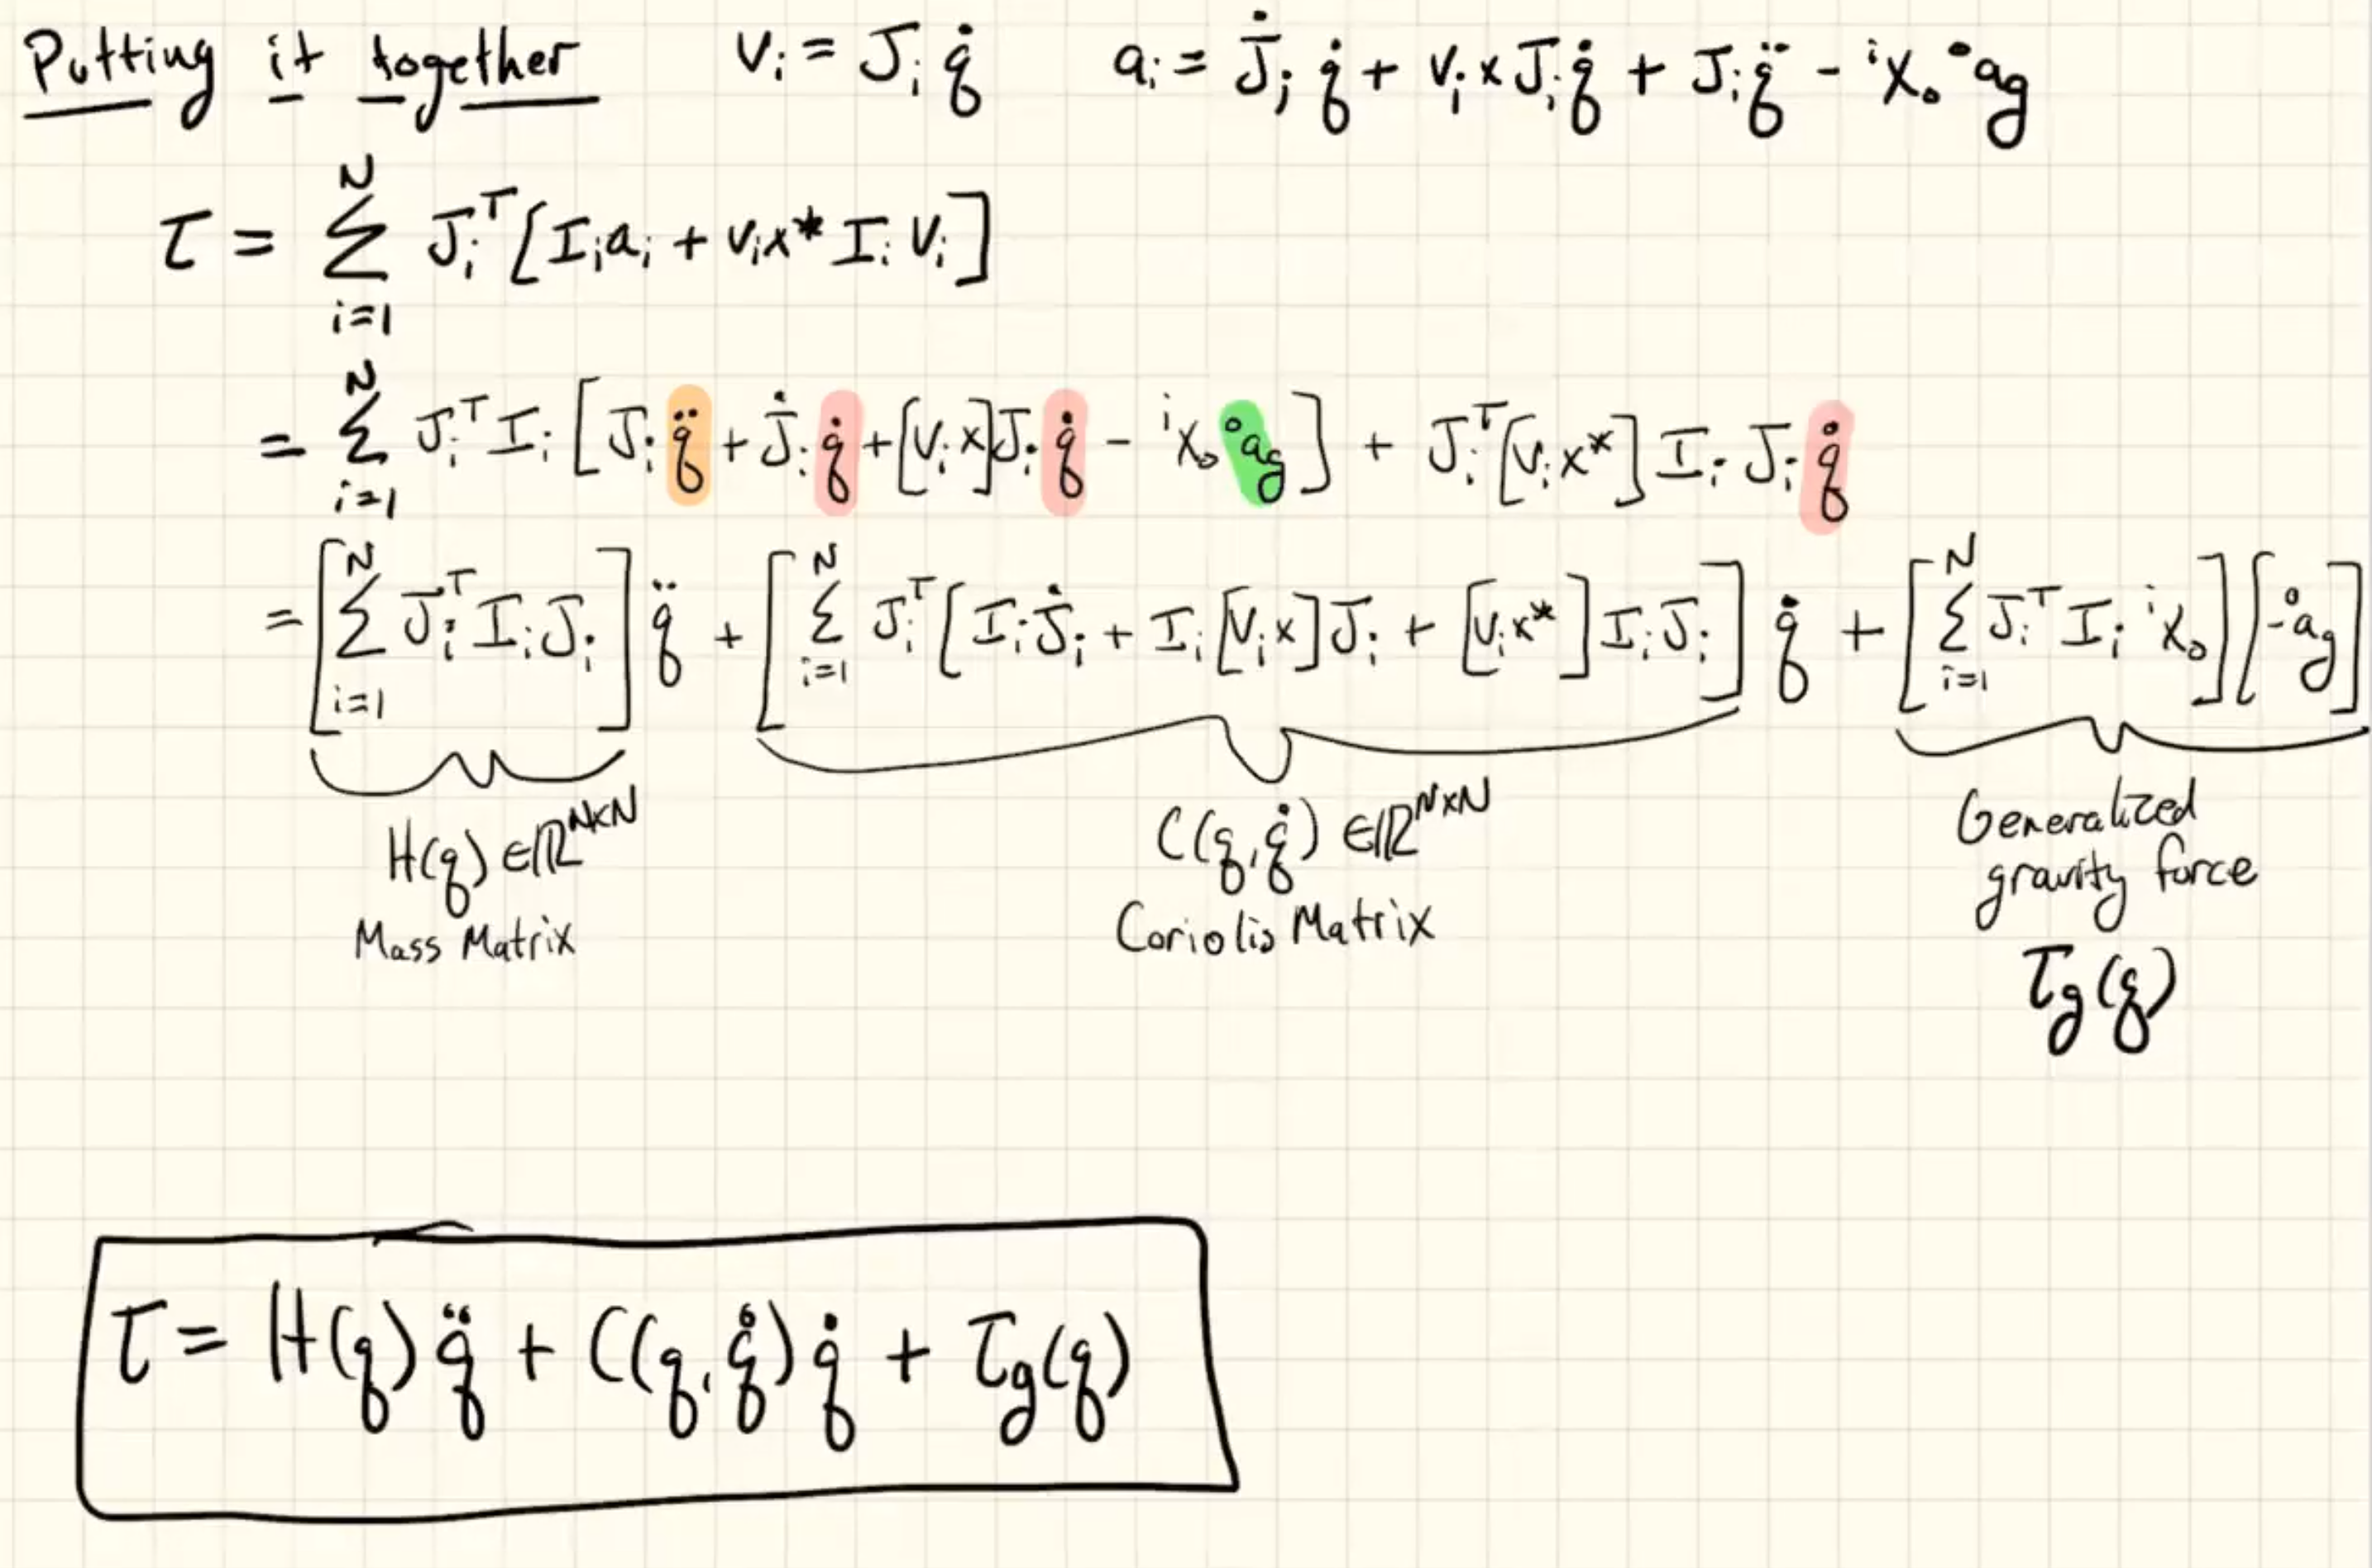 Putting it together vᵢ = Jᵢ q̇ aᵢ = J̇ᵢ q̇ + vᵢ × Jᵢ q̇ + Jᵢ q̈ - ⁱX₀ ⁰a_g
τ = Σ_{i=1}^{N} Jᵢᵀ [Iᵢ aᵢ + vᵢ ×* Iᵢ vᵢ]
= Σ_{i=1}^{N} Jᵢᵀ Iᵢ [Jᵢ q̈ + J̇ᵢ q̇ + [vᵢ ×] Jᵢ q̇ - ⁱX₀ ⁰a_g] + Jᵢᵀ [vᵢ ×*] Iᵢ Jᵢ q̇
= [Σ_{i=1}^{N} Jᵢᵀ Iᵢ Jᵢ] q̈ + [Σ_{i=1}^{N} Jᵢᵀ [Iᵢ J̇ᵢ + Iᵢ [vᵢ ×] Jᵢ + [vᵢ ×*] Iᵢ Jᵢ] q̇ + [Σ_{i=1}^{N} Jᵢᵀ Iᵢ ⁱX₀] [-⁰a_g]
H(q) ∈ ℝ^{N×N}
Mass Matrix
C(q, q̇) ∈ ℝ^{N×N}
Coriolis Matrix
Generalized
gravity force
τ_g(q)
τ = H(q) q̈ + C(q, q̇) q̇ + τ_g(q)